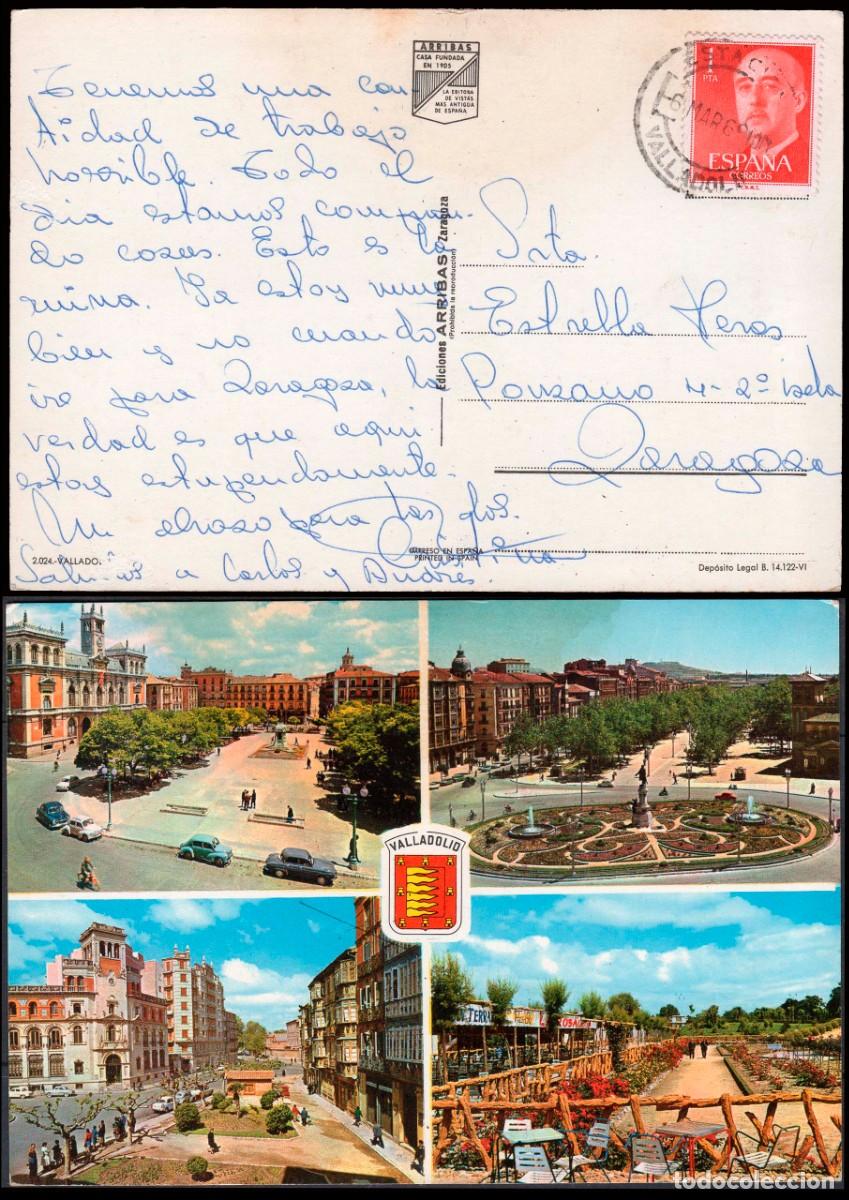 ARRIBAS
CASA FUNDADA
EN 1905
LA EDITORA
DE VISTAS
MAS ANTIGUA
DE ESPAÑA
1
PTA
ESPAÑA
CORREOS
6 MAR 69
VALLADOLID
Tenemos una can-
tidad de trabajo
horrible. Todo el
dia estamos compran-
do cosas. Esto es la
ruina. Ya estoy muy
bien y no cuando
ire para Zaragoza, la
verdad es que aqui
estoy estupendamente.
Un abrazo para las
Saludos a Carlos y Andres.
Ediciones ARRIBAS Zaragoza
(Prohibida la reproducción)
Srta.
Estrella Heras
Ponzano 4-2º
Zaragoza
2.024.-VALLADO
IMPRESO EN ESPAÑA
PRINTED IN SPAIN
Depósito Legal B. 14.122-VI
VALLADOLID
TERRA
todocoleccion